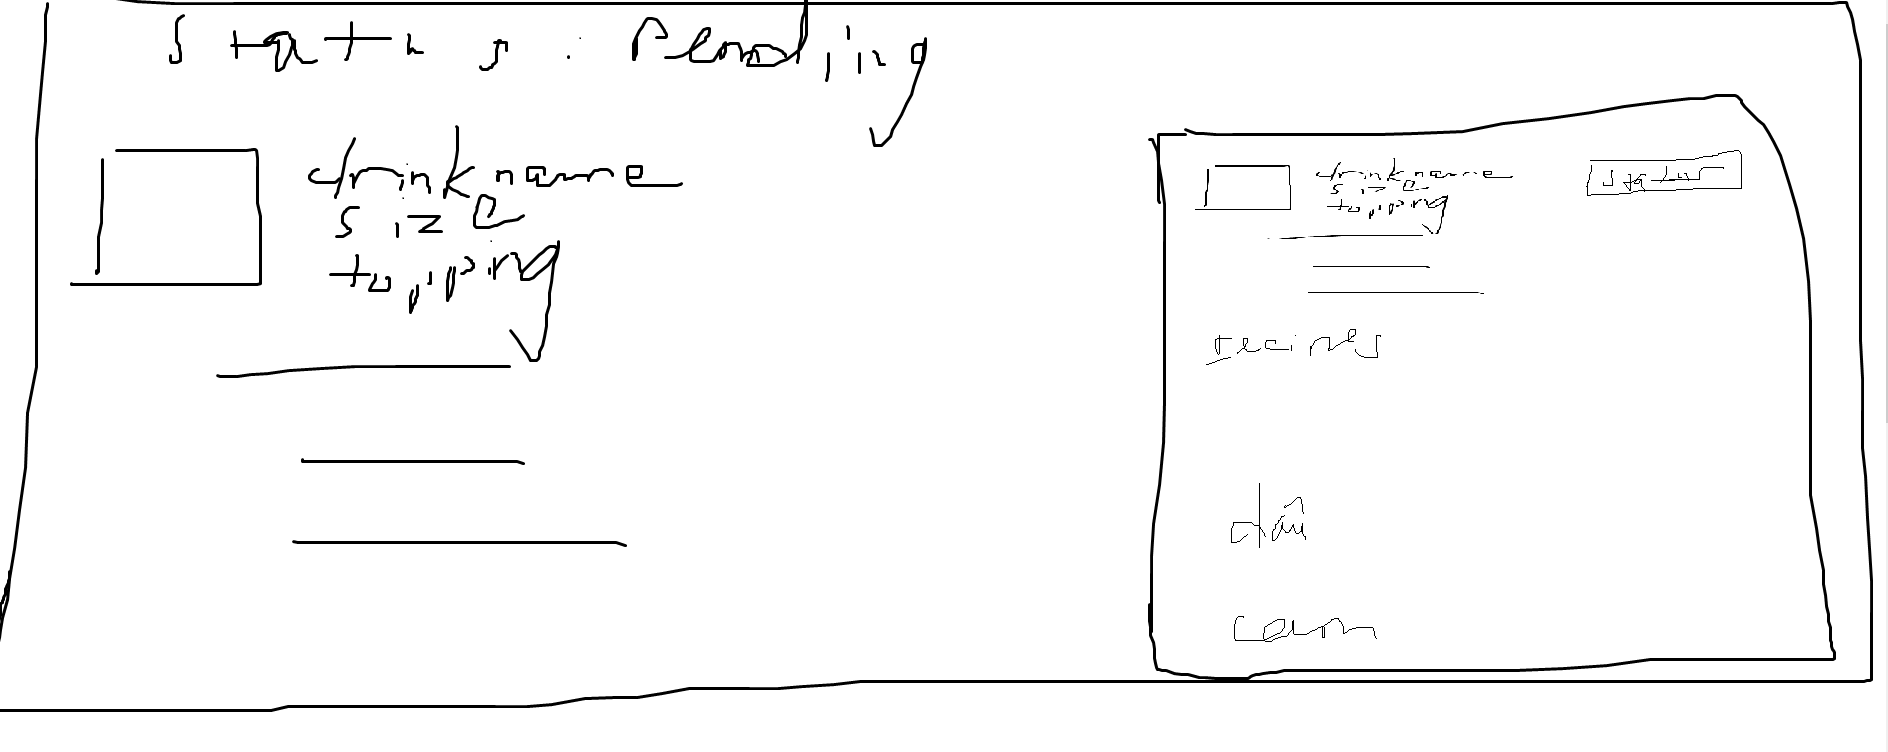 status : Pending
drink name
size
topping
drink name
size
topping
status
recipes
dâu
cam